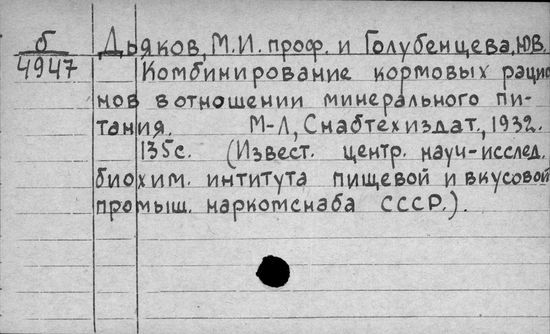 б Дьяков, М.И. проф. и Голубенцева, Ю.В.
4947 Комбинирование кормовых рацио
нов в отношении минерального пи-
тания. М-Л, Снабтехиздат., 1932.
135с. (Извест. центр. науч-исслед.
биохим. интитута пищевой и вкусовой
промыш. наркомснаба СССР.).